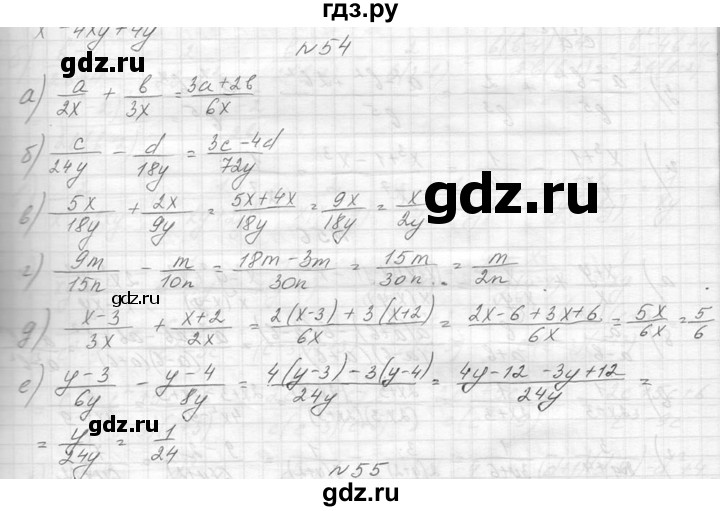 гдз.ру
x² - 4xy + 4y
№54
а) a/2x + b/3x = 3a+2b/6x
б) c/24y - d/18y = 3c-4d/72y
в) 5x/18y + 2x/9y = 5x+4x/18y = 9x/18y = x/2y
gdz.ru
г) 9m/15n - m/10n = 18m-3m/30n = 15m/30n = m/2n
gdz.ru
д) x-3/3x + x+2/2x = 2(x-3)+3(x+2)/6x = 2x-6+3x+6/6x = 5x/6x = 5/6
е) y-3/6y - y-4/8y = 4(y-3)-3(y-4)/24y = 4y-12-3y+12/24y =
= y/24y = 1/24
gdz.ru
№55
gdz.ru